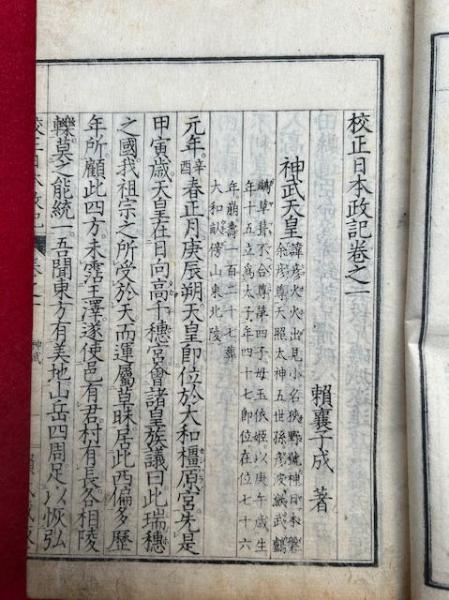 校正日本政記卷之一
賴襄子成 著
神武天皇
諱彥火火出見小名狹野號神日本磐
余彥尊天照太神五世孫彥波瀲武鸕
鶿草葺不合尊第四子母玉依姬以庚午歲生
年十五立爲太子年四十七即位在位七十六
年崩壽一百二十七葬
大和畝傍山東北陵
元年辛酉春正月庚辰朔天皇即位於大和橿原宮先是
甲寅歲天皇在日向高千穗宮會諸皇族議曰此瑞穗
之國我祖宗之所受於天而運屬草昧居此西偏多歷
年所顧此四方未霑王澤遂使邑有君村有長各相陵
轢莫之能統一吾聞東方有美地山岳四周足以恢弘
校正日本政記 卷之一 神武